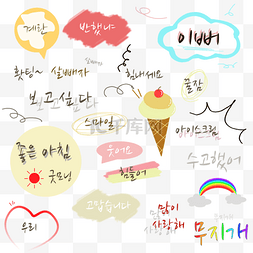 계란
바쁘냐
이뻐
홧팅~
살빼자
살빼자
힘내세요
꿀잠
보고싶다
스마일
아이스크림
좋은 아침
웃어요
수고했어
굿모닝
힘들어
우리
고맙습니다
많이
사랑해
무지개